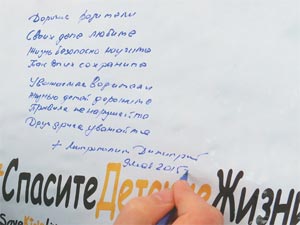 Дорогие родители
Своих детей любите
Жизнь безопасно научите
Как этих сохранить
Уважаемые Водители
Жизнью детей дорожите
Правила не нарушайте
Друг друга уважайте
+ Митрополит Димитрий
9 мая 2015
#СпаситеДетскиеЖизни
SaveKidsLives